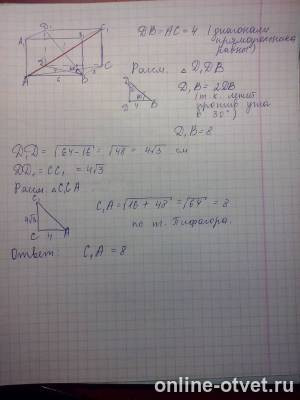 DB = AC = 4 (диагонали
прямоугольника
равны)
Рассм. △ D₁DB
D₁B = 2DB
(т.к. лежит
против угла
в 30°)
D₁B = 8
D₁D = √64-16 = √48 = 4√3 см
DD₁ = CC₁ = 4√3
Рассм. △ C₁CA
C₁A = √16 + 48 = √64 = 8
по т. Пифагора.
4√3
C 4 A
Ответ: C₁A = 8
online-otvet.ru